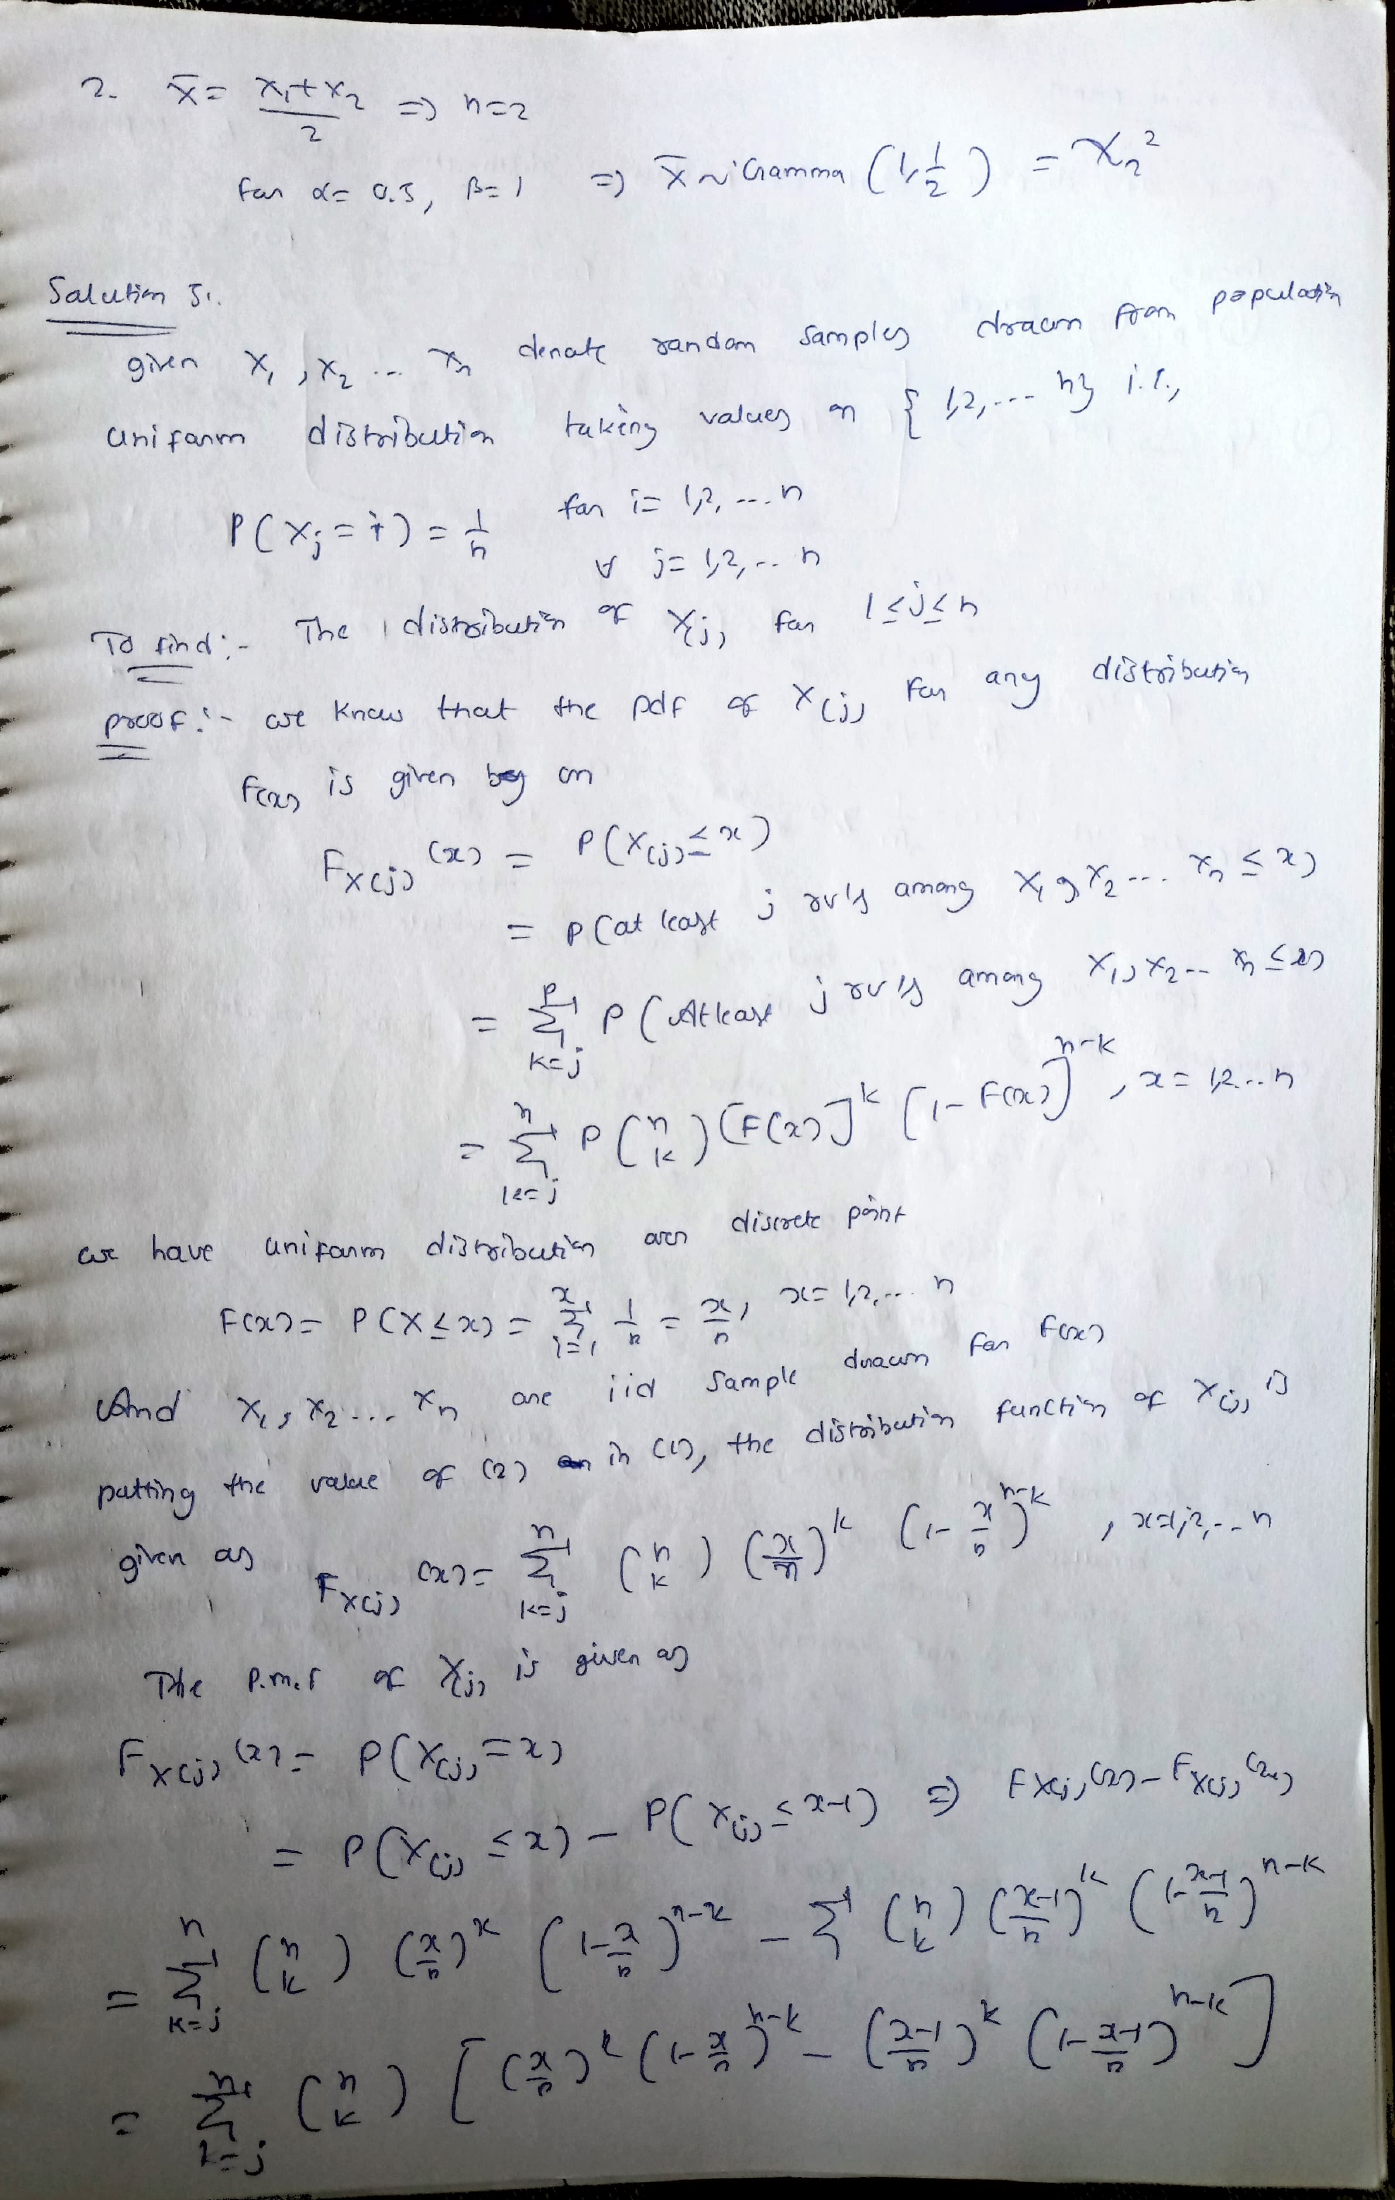 2. X̄ = (X₁+X₂)/2 ⇒ n=2
for α= 0.5, β=1 ⇒ X̄ ~ Gamma (1, 1/2) = χ₂²
Solution 5:.
given X₁, X₂ ... Xn denote random samples drawn from population
uniform distribution taking values on {1,2,... n} i.e.,
P(Xj = i) = 1/n for i= 1,2, ... n
∀ j= 1,2,.. n
To find:- The distribution of X(j) for 1≤j≤n
proof:- we know that the pdf of X(j) for any distribution
F(x) is given by on
F_X(j) (x) = P(X(j) ≤ x)
= P(at least j rv's among X₁, X₂ ... Xn ≤ x)
= Σ_{k=j}^{n} P(At least j rv's among X₁, X₂ .. Xn ≤ x)
= Σ_{k=j}^{n} P (n k) [F(x)]^k [1- F(x)]^{n-k}, x= 1,2...n
we have uniform distribution over discrete point
F(x) = P(X≤x) = Σ_{i=1}^{x} 1/n = x/n, x= 1,2,... n
And X₁, X₂ ... Xn are iid sample drawn for F(x)
putting the value of (2) in (1), the distribution function of X(j) is
given as F_X(j) (x) = Σ_{k=j}^{n} (n k) (x/n)^k (1- x/n)^{n-k}, x=1,2,..n
The P.m.f of X(j) is given as
F_X(j) (x) = P(X(j) = x)
= P(X(j) ≤ x) - P(X(j) ≤ x-1) ⇒ F_X(j) (x) - F_X(j)
= Σ_{k=j}^{n} (n k) (x/n)^k (1- x/n)^{n-k} - Σ (n k) (x-1/n)^k (1- x-1/n)^{n-k}
= Σ_{k=j}^{n} (n k) [(x/n)^k (1- x/n)^{n-k} - (x-1/n)^k (1- x-1/n)^{n-k}]